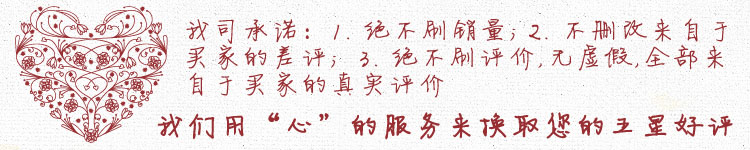 我司承诺：1. 绝不刷销量；2. 不删改来自于
买家的差评；3. 绝不刷评价,无虚假,全部来
自于买家的真实评价
我们用“心”的服务来换取您的五星好评